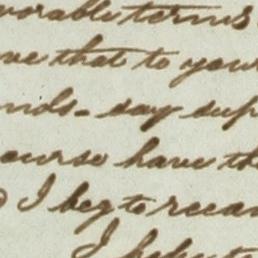 vorable terms
ve that to your
nds - say sup
ourse have th
I beg to recom
I